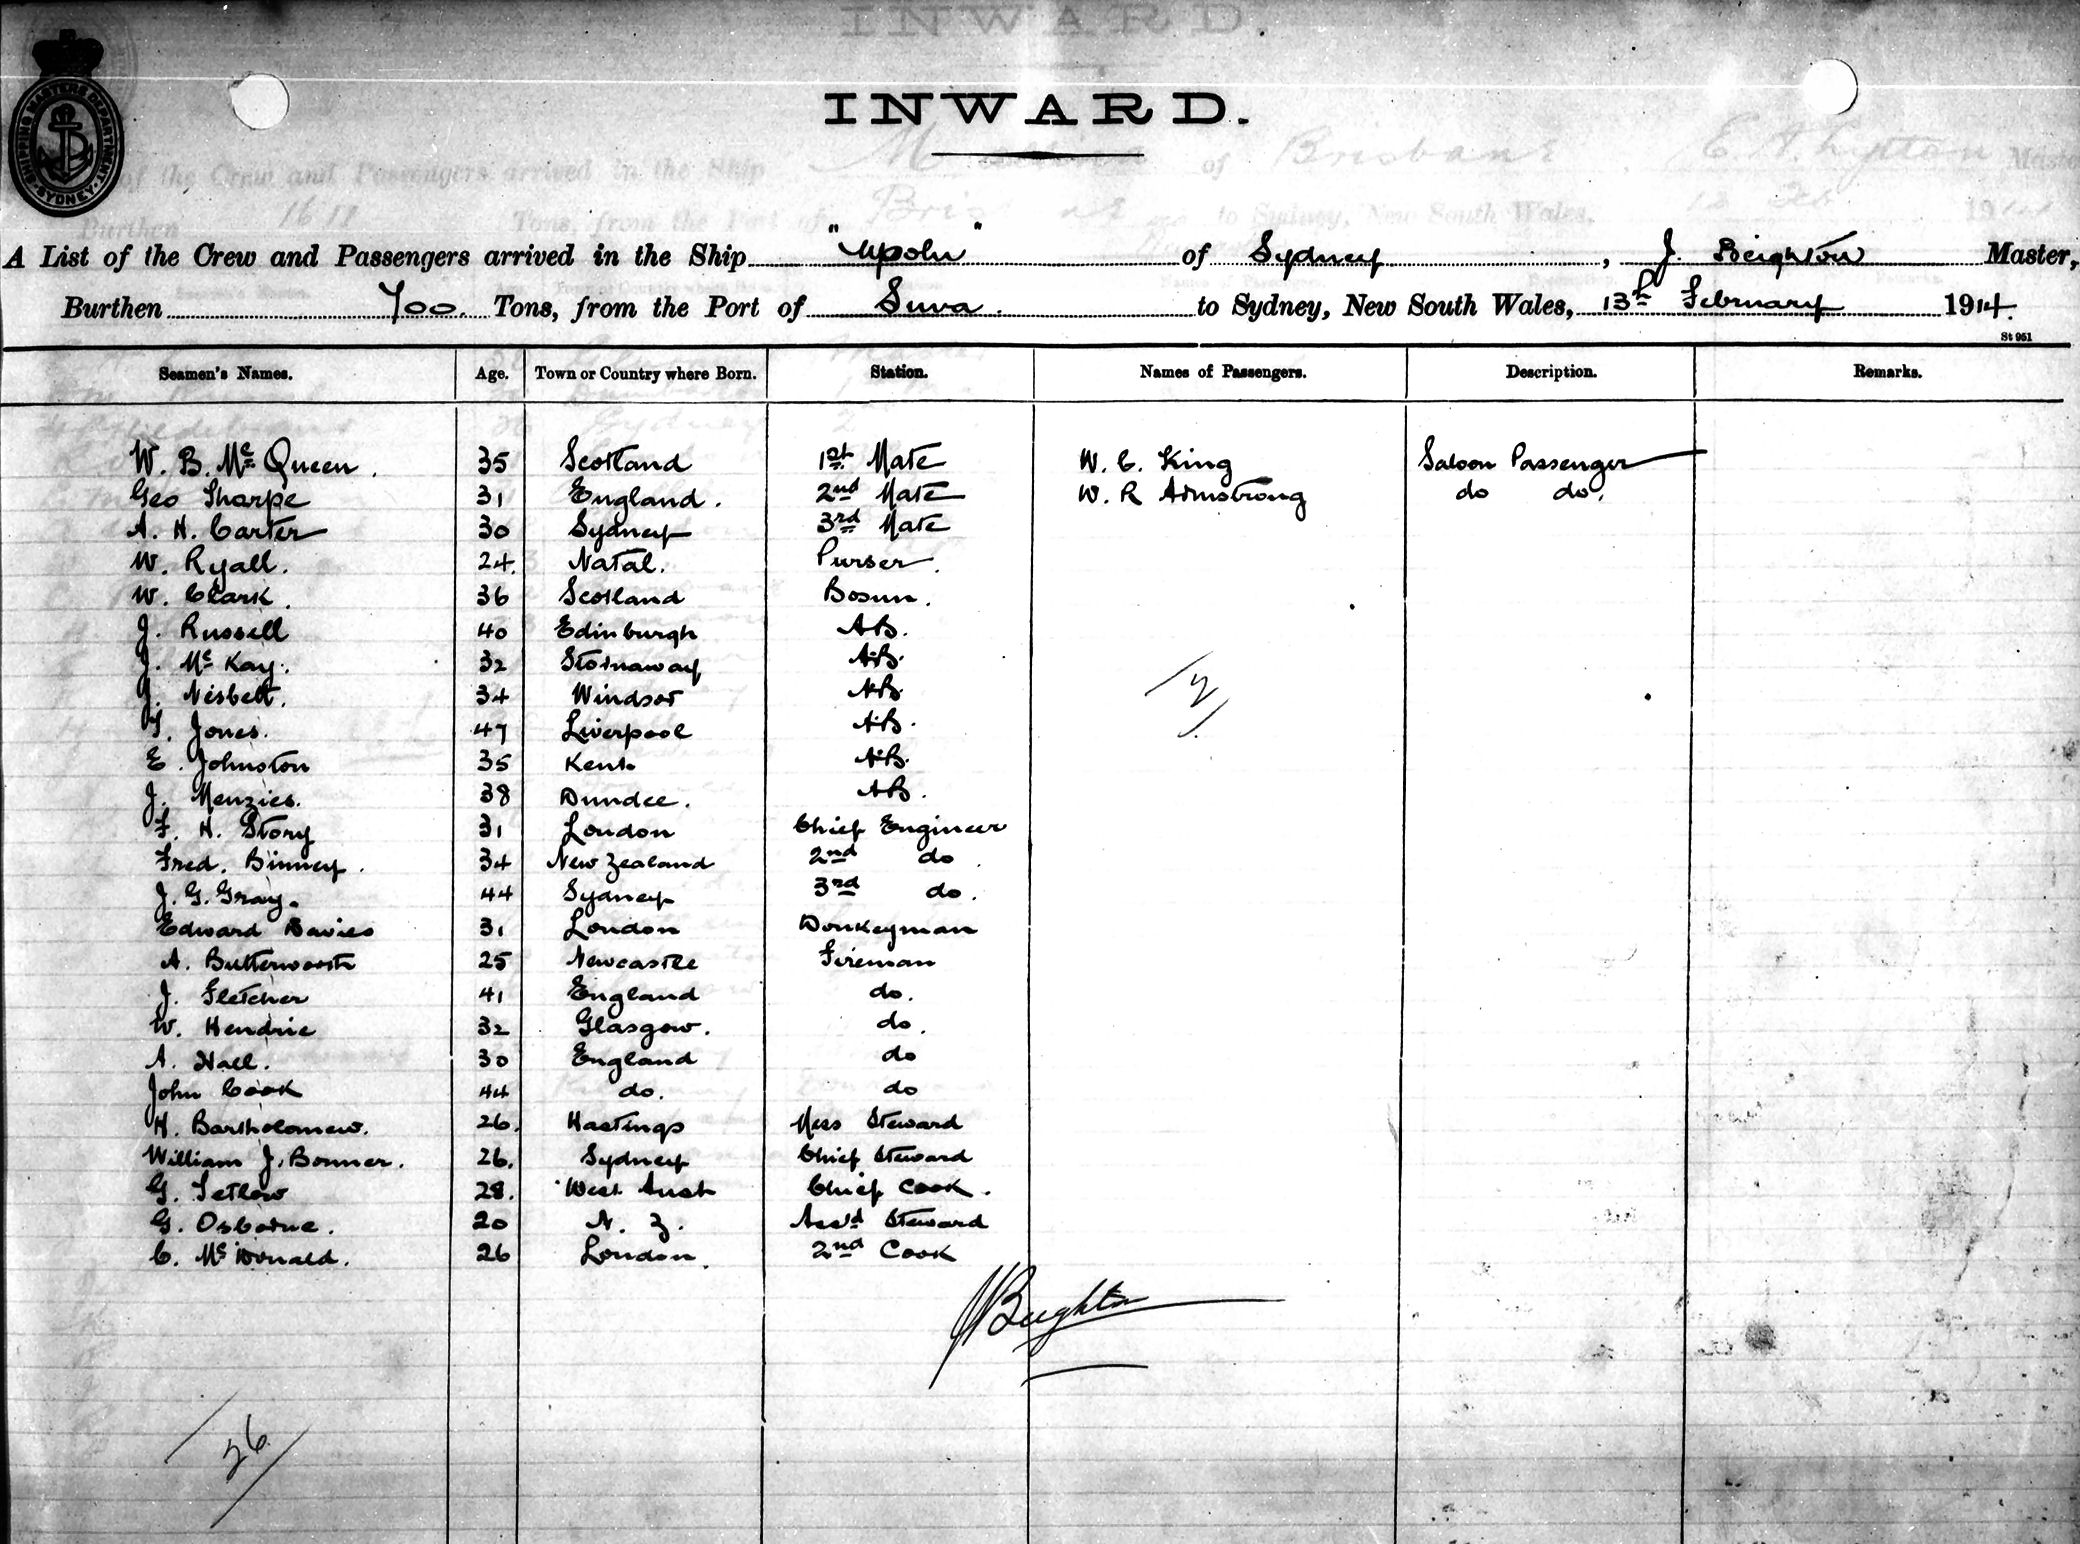 INWARD.
SHIPPING MASTERS DEPARTMENT SYDNEY
A List of the Crew and Passengers arrived in the Ship "Upolu" of Sydney, J. Beighton Master,
Burthen 700. Tons, from the Port of Suva. to Sydney, New South Wales, 13th February 1914.
St 951
Seamen's Names. Age. Town or Country where Born. Station. Names of Passengers. Description. Remarks.
W. B. McQueen. 35 Scotland 1st Mate W. C. King Saloon Passenger
Geo Sharpe 31 England. 2nd Mate W. R Armstrong do do.
A. H. Carter 30 Sydney 3rd Mate
W. Ryall. 24. Natal. Purser.
W. Clark. 36 Scotland Bosun.
J. Russell 40 Edinburgh AB.
J. McKay. 32 Stornaway AB.
J. Nisbett. 34 Windsor AB.
T. Jones. 47 Liverpool AB.
E. Johnston 35 Kent. AB.
J. Menzies. 38 Dundee. AB.
F. H. Story 31 London Chief Engineer
Fred. Binney. 34 New Zealand 2nd do.
J. G. Gray. 44 Sydney 3rd do.
Edward Davies 31 London Donkeyman
A. Butterworth 25 Newcastle Fireman
J. Fletcher 41 England do.
W. Hendrie 32 Glasgow. do.
A. Hall. 30 England do
John Cook 44 do. do
H. Bartholomew. 26. Hastings Mess Steward
William J. Bonner. 26. Sydney Chief Steward
G. Tetlow 28. West Aust Chief Cook.
G. Osborne. 20 N. Z. Ass'd Steward
C. McDonald. 26 London. 2nd Cook
2
J Beighton
26